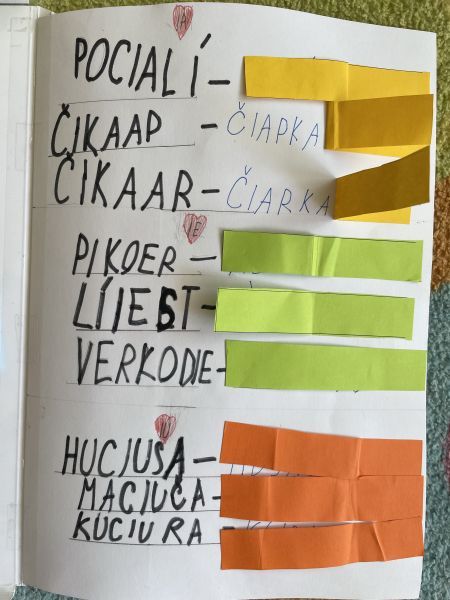 IA
POCIALÍ –
ČIKAAP – ČIAPKA
ČIKAAR – ČIARKA
IE
PIKOER –
LÍIEST –
VERKODIE –
IU
HUCIUSA –
MACIUČA –
KUCIURA –